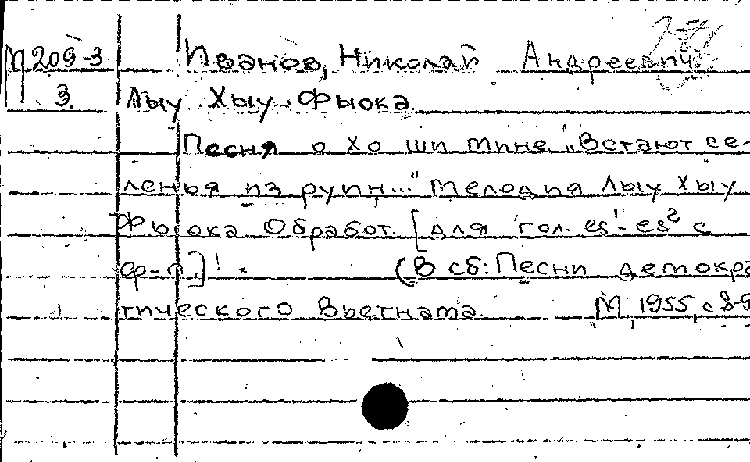 М 209-3 Иванов, Николай Андреевич.
3. Лыу Хыу Фыока
Песня о Хо Ши Мине. „Встают се-
ленья из руин..." Мелодия Лыу Хыу
Фыока Обработ. [для гол. es¹-es² с
ф-п.]! .
(В сб: Песни демокра
тического Вьетнама. М, 1955, с 8-9